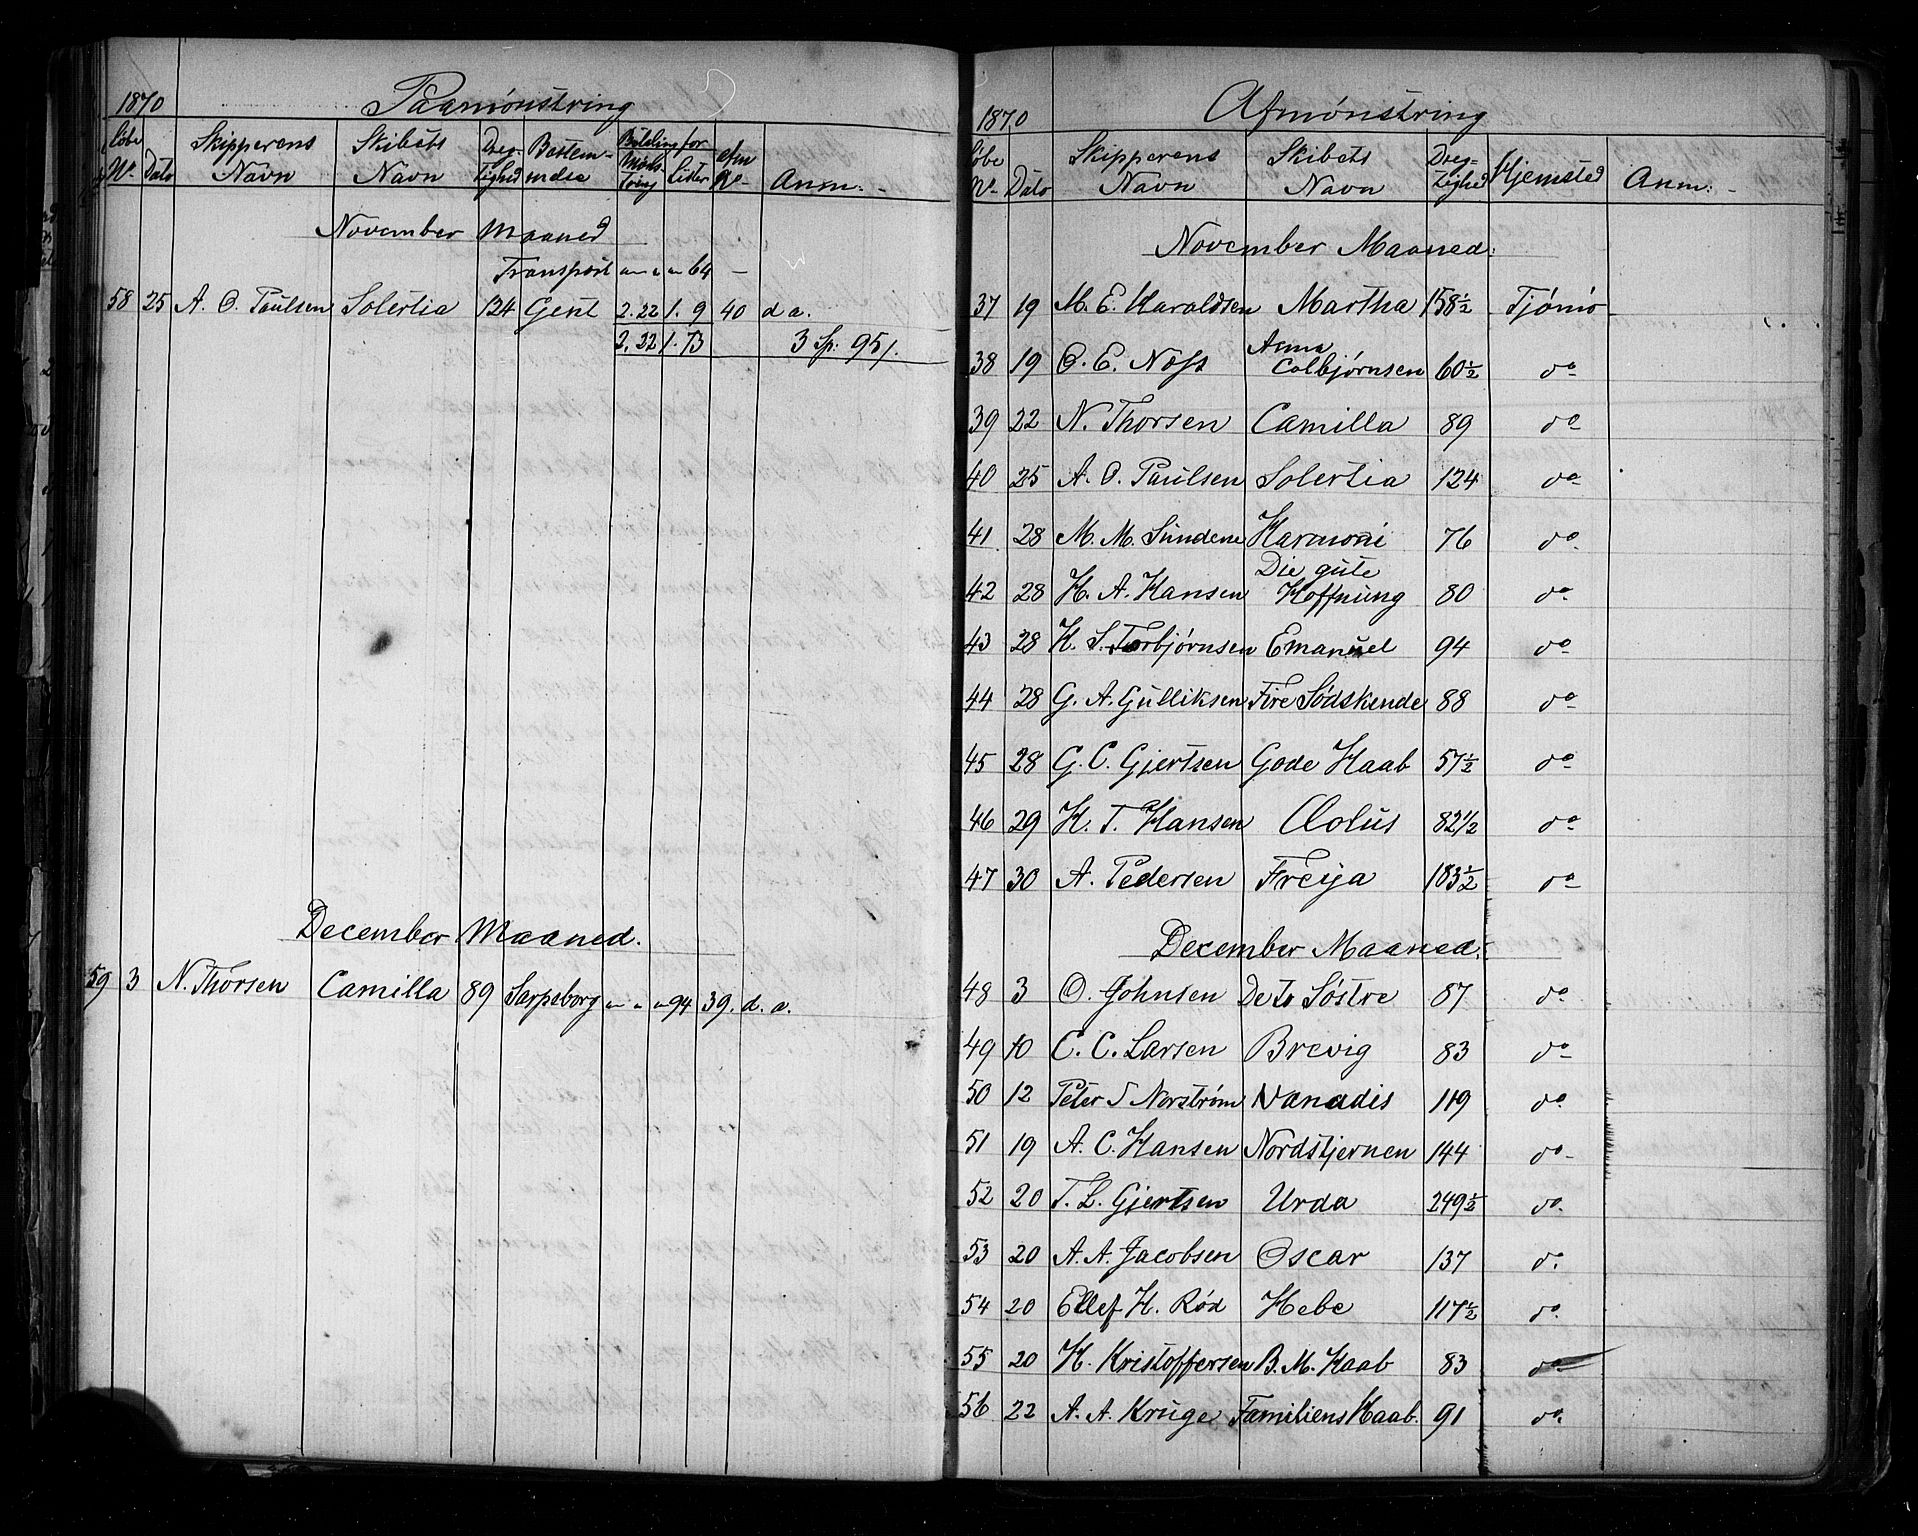 1870 Paamønstring
Løbe No Dato Skipperens Navn Skibets Navn Dræg-tighed Bestem-melse Betaling for Mønst-ring Lister afm No Anm:
November Maaned
Transport " " " 64 –
58 25 A. O. Paulsen Solertia 124 Gent 2.22 1. 9 40 d a.
2.22 1.73 3 Sp: 95 /.
December Maaned.
59 3 N. Thorsen Camilla 89 Sarpsborg " " " 94 39. d. a.
1870 Afmønstring
Løbe No Dato Skipperens Navn Skibets Navn Dræg-tighed Hjemsted Anm:
November Maaned:
37 19 M. E. Haraldsen Martha 158½ Tjømø
38 19 O. E. Næss Anna Colbjørnsen 60½ do
39 22 N. Thorsen Camilla 89 do
40 25 A. O. Paulsen Solertia 124 do
41 28 M. M. Sundene Harmoni 76 do.
42 28 H. A. Hansen Die gute Hoffnung 80 do.
43 28 H. S. Torbjørnsen Emanuel 94 do
44 28 G. A. Gulliksen Fire Södskende 88 do
45 28 G. C. Gjertsen Gode Haab 57½ do
46 29 H. T. Hansen Æolus 82½ do
47 30 A. Pedersen Freija 183½ do
December Maaned:
48 3 O. Johnsen De to Søstre 87 do.
49 10 C. C. Larsen Brevig 83 do
50 12 Peter S Norstrøm Vanadis 119 do.
51 19 A. C. Hansen Nordstjernen 144 do
52 20 T. L. Gjertsen Urda 249½ do.
53 20 A. A. Jacobsen Oscar 137 do.
54 20 Ellef H. Rød Hebe 117½ do.
55 20 H. Kristoffersen B. M. Haab 83 do
56 22 A. A. Kruge Familiens Haab. 91 do.